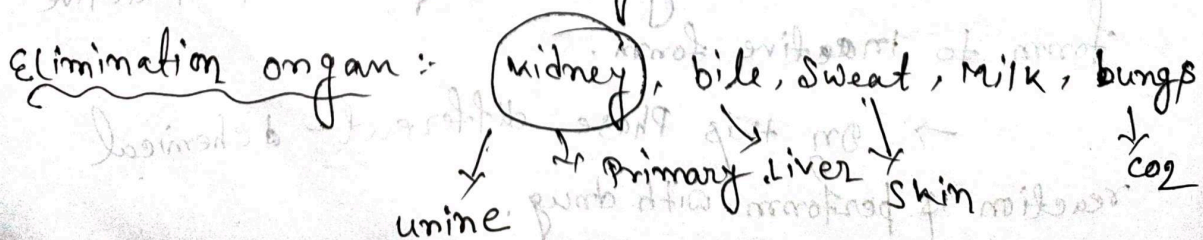 Elimination organ :- kidney, bile, sweat, Milk, lungs
urine primary liver skin CO2